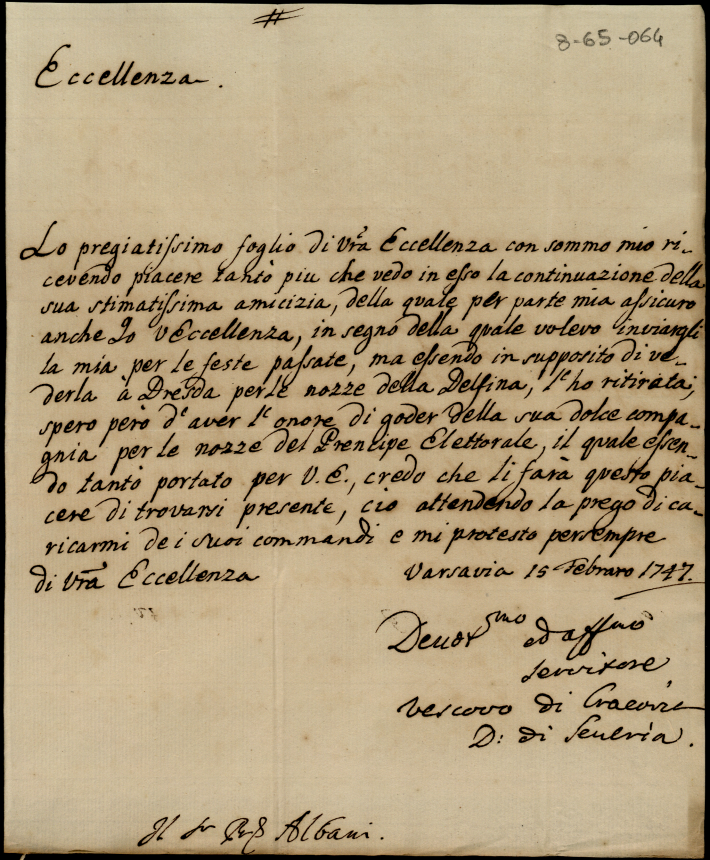 #
8-65-064
Eccellenza.
Lo pregiatissimo foglio di Vrã Eccellenza con sommo mio ri-
cevendo piacere tantò piu che vedo in esso la continuazione della
sua stimatissima amicizia, della quale per parte mia assicuro
anche Io VEccellenza, in segno della quale volevo inviargli
la mia per le feste passate, ma essendo in supposito di ve-
derla à Dresda per le nozze della Delfina, l'ho ritirata;
spero però d'aver l'onore di goder della sua dolce compa-
gnia per le nozze del Prencipe Elettorale, il quale essen-
do tantò portato per V.E., credo che li farà questo pia-
cere di trovarsi presente, ciò attendendo la prego di ca-
ricarmi de i suoi commandi e mi protesto per sempre
di Vrã Eccellenza Varsavia 15 Febraro 1747.
Devot.mo ed affmo
servitore
Vescovo di Cracovia
D: di Severia.
Il Sr Albani.